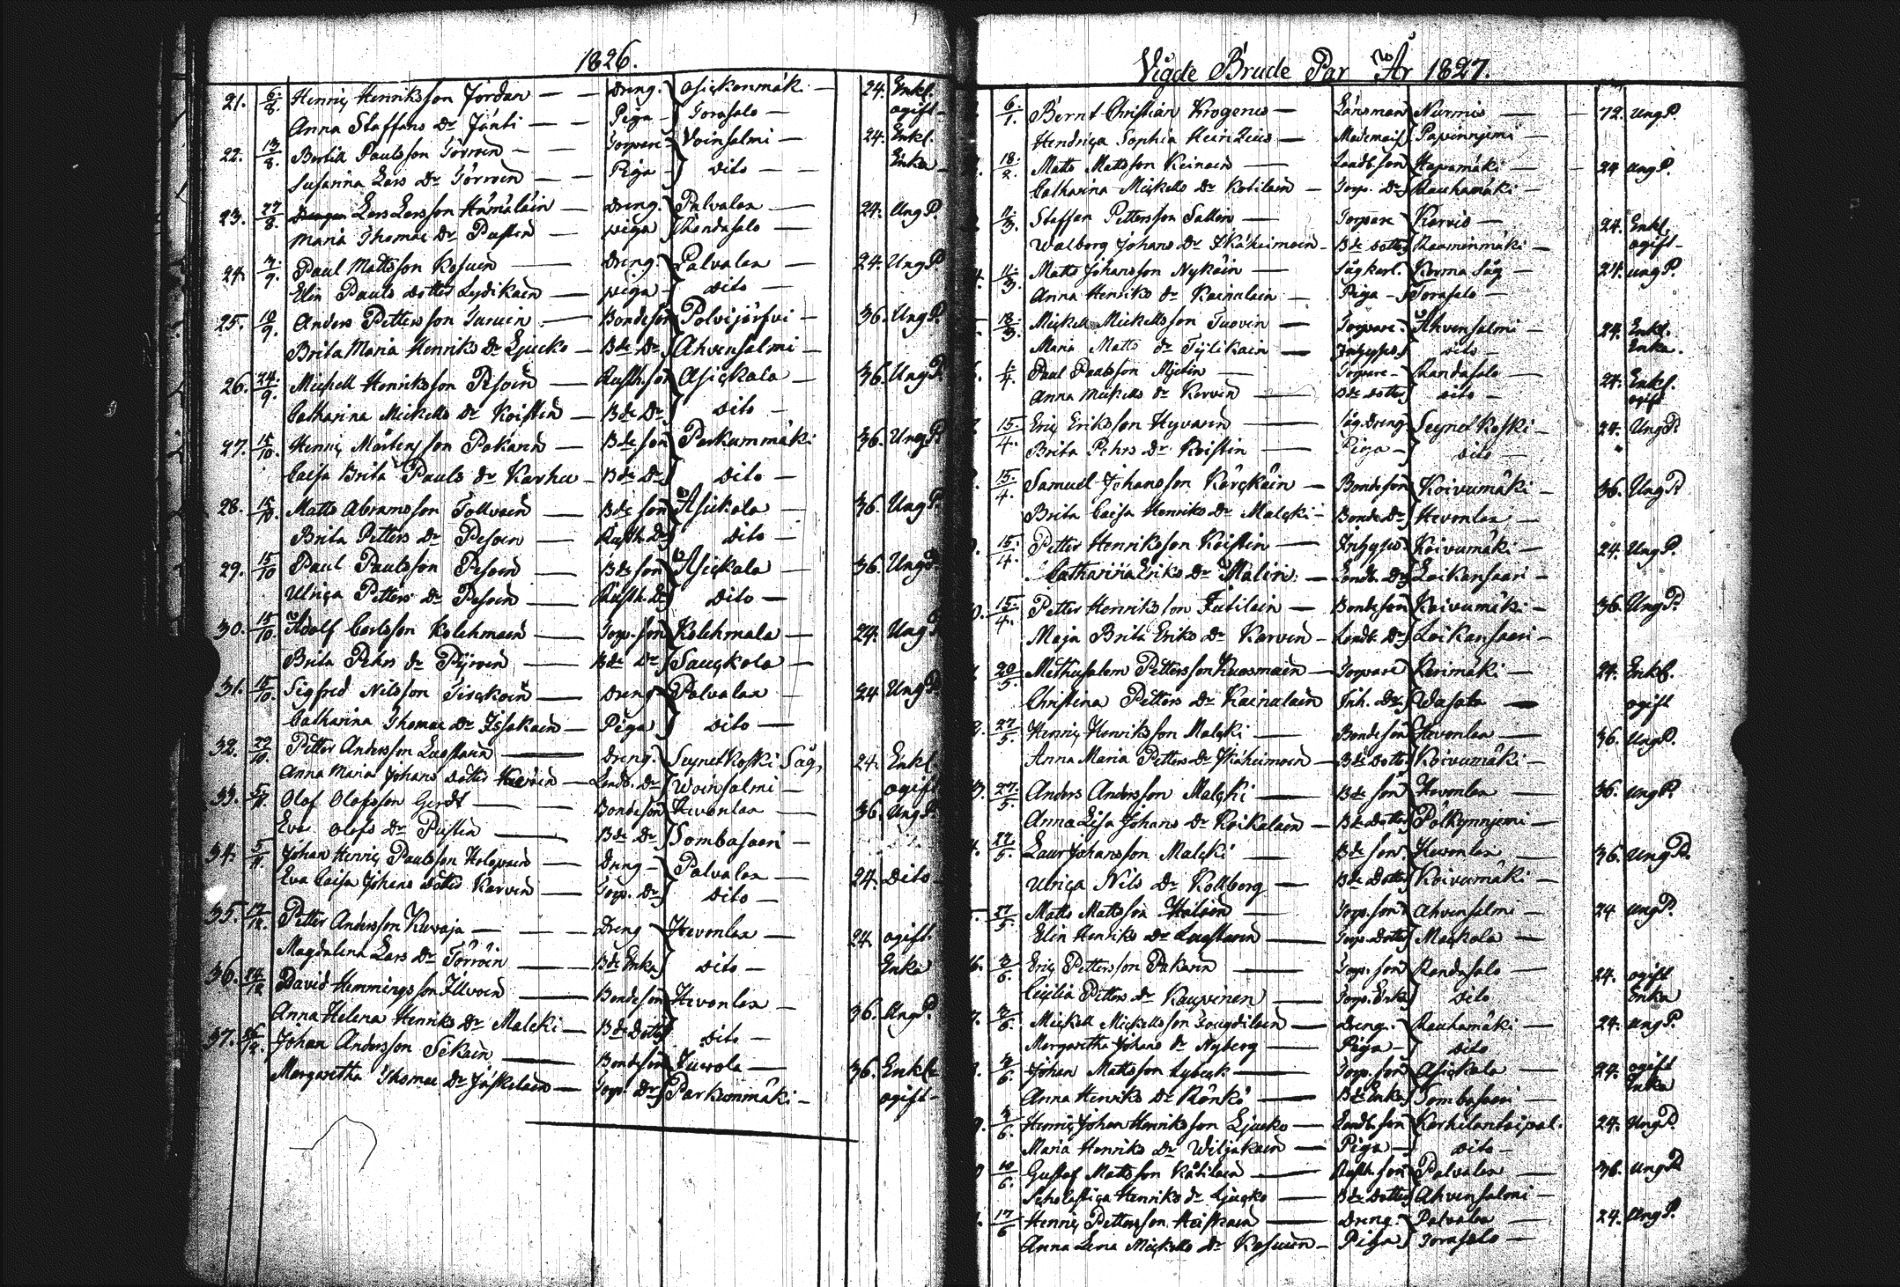 1826.
21. 6/8. Henric Henriksson Jordan — Dreng. Asickonmäk. 24. Enkl.
Anna Staffans Dr Jänti — Piga — Torasalo — ogift
22. 13/8. Bertill Paulsson Törröin — Torpare Woinsalmi — 24. Enkl.
Susanna Lars Dr Törröin — Piga — dito — Enka
23. 27/8. Lars Larsson Hämäläin — Dreng. Palvalax — 24. Ung P.
Maria Thomae Dr Pustin — piga Randasalo —
24. 3/9. Paul Mattsson Kosuin — Dreng. Palvalax — 24. Ung P.
Elin Pauls dotter Lydikain — piga — dito —
25. 10/9. Anders Pettersson — Bondeson Polvijärfvi — 36. Ung P.
Brita Maria Henriks Dr Ljucko — Bde Dr Ahvensalmi —
26. 24/9. Michell Henriksson Pesoin — Rusth.son Asickala — 36. Ung P.
Catharina Mickells Dr Koistin — Bde Dr dito —
27. 15/10. Henric Mårtensson Pakarin — Bde son Parkummäki 36. Ung P.
Caisa Brita Pauls Dr Karhu — Bde Dr dito —
28. 15/10. Matts Abramsson Tollvain — Bde son Asickala — 36. Ung P.
Brita Petters Dr Pesoin — Rusth. Dr dito —
29. 15/10 Paul Paulsson Pesoin — Bde son Asickala — 36. Ung P.
Ulrica Petters Dr Pesoin — Rusth. Dr dito —
30. 15/10. Adolf Carlsson Kolehmain — Torp. son Kolehmala — 24. Ung P.
Brita Pehrs Dr Pÿroin — Bde Dr Sauckola —
31. 15/10. Sigfred Nilsson Tirckoin — Dreng Palvalax — 24 Ung P.
Catharina Thomae Dr Issakain — Piga dito —
32. 29/10. Petter Andersson Laastarin — Dreng. Suynet Koski Såg, 24. Enkl.
Anna Maria Johans dotter — Landb. Dr Woinsalmi — ogift
33. 5/11. Olof Olofsson Gerdt — Bondeson Hevonlax — 36. Ung P.
Eva Olofs Dr Pustin — Bde Dr Sombasaari —
34. 5/11. Johan Henric Paulsson Holopain — Dreng — Palvalax — 24. dito
Eva Caisa Johans dotter Karvin — Torp. Dr dito —
35. 17/12. Petter Andersson Kuvaja — Dreng Hevonlax — 24. ogift
Magdalena Lars Dr Törröin — Bde Enka dito — Enka
36. 14/12 David Hemmingsson Illvoin — Bondeson Hevonlax — 36. Ung P.
Anna Helena Henriks Dr Malcki — Bde dotter dito —
37. 26/12. Johan Andersson Sikain — Bondeson Juvola — 36. Enkl.
Margaretha Thomae Dr Jäskeläin — Torp. Dr Parkunmäki — ogift —
Vigde Brude Par År 1827.
6/1. Bernt Christian Krogerus — Länsman Nurmis — 72. Ung P.
Hendrica Sophia Heintzius — Mademois. Papinniemi —
18/2. Matts Mattsson Keinain — Landb. son Hapamäki — 24 Ung P.
Catharina Mickells Dr Kotilain — Torp. Dr Rauhamäki —
11/3. Staffan Pettersson Sallin — Torpare Kervis — 24. Enkl.
Walborg Johans Dr Ikäheimoin — Bde dotter Raaminmäki — ogift —
11/3. Matts Johansson Nykäin — Sågkarl. Korma Såg — 24. Ung P.
Anna Henriks Dr Kainulain — Piga — Torasalo —
18/3. Mickell Mickellsson Tuovin — Torpare Ahvensalmi — 24. Enkl.
Maria Matts Dr Tiilikain — Inhyses dito — Enka.
1/4. Paul Paulsson — Torpare — Randasalo — 24. Enkl.
Anna Mickells Dr Karvin — Bde dotter dito — ogift
15/4. Eric Eriksson Hyvärin — Såg Dreng Suynet Koski — 24. Ung P.
Brita Pehrs Dr Koistin — Piga — dito —
15/4. Samuel Johansson Kärckäin — Bondeson Koivumäki — 36. Ung P.
Brita Caisa Henriks Dr Malcki — Bonde Dr Hevonlax —
15/4. Petter Henriksson Koistin — Inhyses Koivumäki — 24. Ung P.
Catharina Eriks Dr Malin — Landb. Dr Laikansaari —
15/4. Petter Henriksson Jutilain — Bondeson Koivumäki — 36. Ung P.
Maja Brita Eriks Dr Karvin — Landb. Dr Laikansaari —
20/5. Methusalem Pettersson Kuosmain — Torpare Kerimäki — 24. Enkl.
Christina Petters Dr Kainulain Inh. Dr — ogift
27/5. Henric Henriksson Malcki — Bondeson Hevonlax — 36. Ung P.
Anna Maria Petters Dr Ikäheimoin — Bde dotter Koivumäki —
27/5. Anders Andersson Malcki — Bde son Hevonlax — 36. Ung P.
Anna Lisa Johans Dr Roikolain — Bde dotter Pölkynnjemi —
27/5. Laur Johansson Malcki — Bde son Hevonlax — 36. Ung P.
Ulrica Nils Dr Kollborg — Bde dotter Koivumäki —
27/5. Matts Mattsson — Torp. son Ahvensalmi — 24 Ung P.
Elin Henriks Dr Laastarin — Torp. dotter Mackola —
3/6. Eric Pettersson Pakarin — Torp. son Randasalo — 24. ogift
Cicilia Petters Dr Kaupinen — Torp. Enka dito Enka
3/6. Mickell Mickellsson — Dreng. Rauhamäki — 24. Ung P.
Margaretha Johans Dr Nyberg — Piga — dito
4/6. Johan Mattsson Lybeck — Torp. son Asickala — 24. ogift
Anna Henriks Dr Rönkö — Bde Enka Sombasaari — Enka
4/6. Henric Johan Henriksson Ljucko — Landb. son Karhilantaipal. 24. Ung P.
Maria Henriks Dr Wiljakain — Piga — dito —
10/6. Gustaf Mattsson Kotilain — Rusth. son Palvalax — 36. Ung P.
Scholastica Henriks Dr Ljucko — Bde dotter Ahvensalmi —
17/6 Henric Pettersson Heiskain — Dreng. Palvalax — 24. Ung P.
Anna Lena Mickells Dr Kosuin — Piga Torasalo —